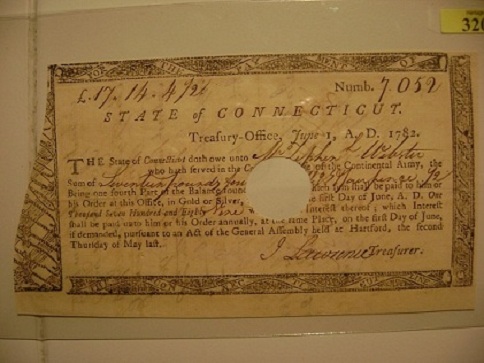 320
£.17.14.4
Numb. 7,052
STATE of CONNECTICUT.
Treasury-Office, June 1, A. D. 1782.
THE State of Connecticut doth owe unto Webster
who hath served in the Connecticut the Continental Army, the
Sum of Seventeen pounds
Being one fourth Part of the Balance found shall be paid to him or
his Order at this Office, in Gold or Silver, first Day of June, A. D. One
Thousand Seven Hundred and Eighty Interest thereof; which Interest
shall be paid unto him or his Order annually, at the same Place, on the first Day of June,
if demanded, pursuant to an Act of the General Assembly held at Hartford, the second
Thursday of May last.
J Lawrence Treasurer.